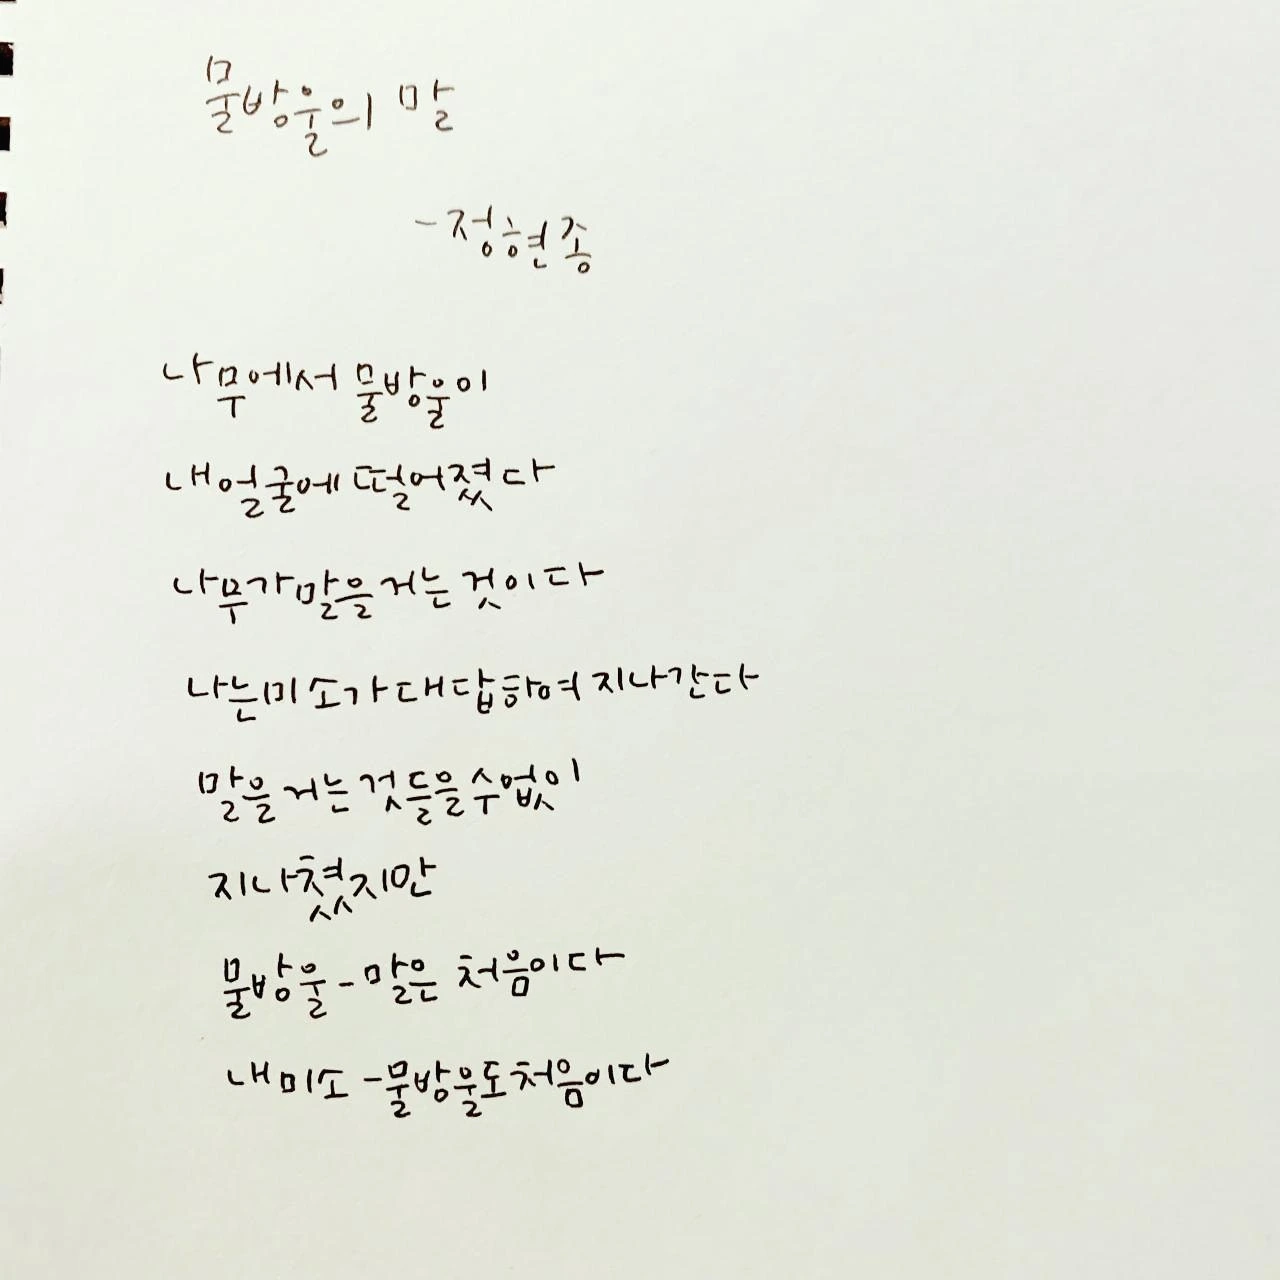 물방울의 말
- 정현종
나무에서 물방울이
내 얼굴에 떨어졌다
나무가 말을 거는 것이다
나는 미소가 대답하여 지나간다
말을 거는 것들을 수없이
지나쳤지만
물방울 - 말은 처음이다
내 미소 - 물방울도 처음이다